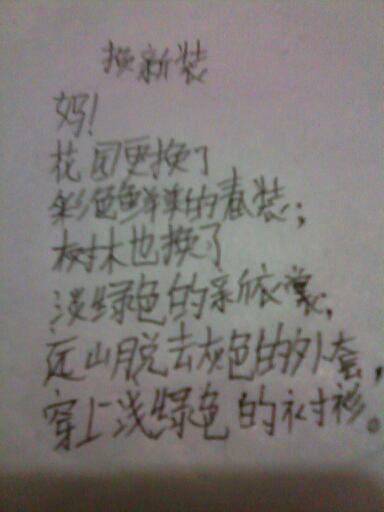 换新装
妈!
花园更换了
彩色鲜艳的春装;
树林也换了
淡绿色的新衣裳;
远山脱去灰色的外套,
穿上浅绿色的衬衫。